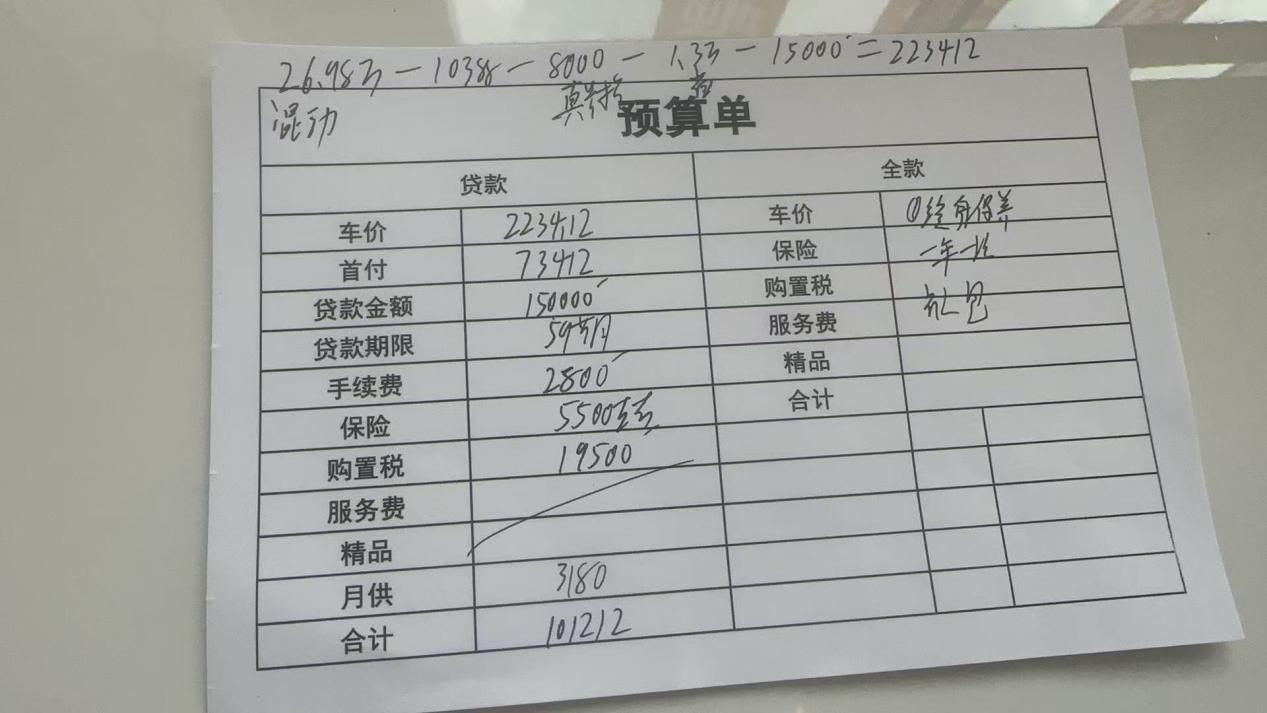 26.98万-10388-8000-1.3万-15000=223412
混动
预算单
贷款 全款
车价 223412 车价 ①终身保养
首付 73412 保险 一年一次
贷款金额 150000 购置税
贷款期限 59 月 服务费 礼包
手续费 2800 精品
保险 5500左右 合计
购置税 19500
服务费
精品
月供 3180
合计 101212